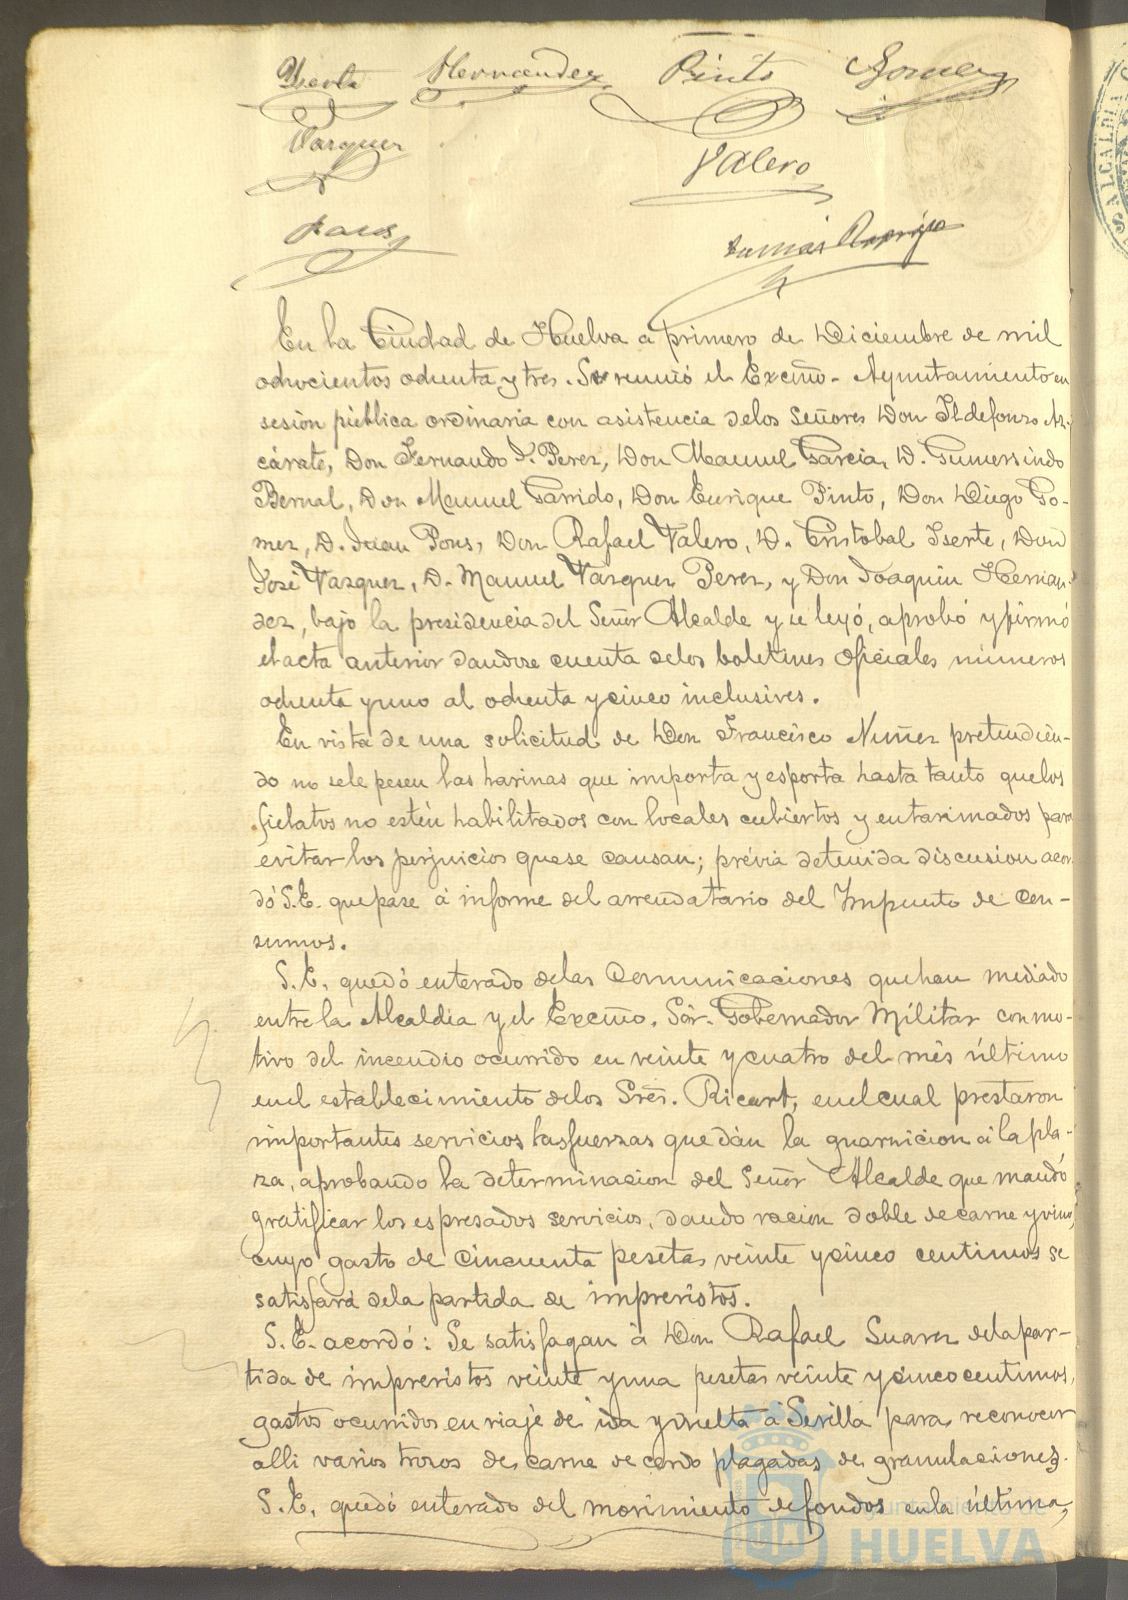 Iserte Hernandez Pinto Gomez
Vazquez Valero
Pons
En la Ciudad de Huelva a primero de Diciembre de mil
ochocientos ochenta y tres. Se reunió el Excmo. Ayuntamiento en
sesión pública ordinaria con asistencia delos Señores Don Ildefonso Az-
cárate, Don Fernando J. Perez, Don Manuel Garcia, D. Gumersindo
Bernal, Don Manuel Garrido, Don Enrique Pinto, Don Diego Go-
mez, D. Juan Pons, Don Rafael Valero, D. Cristobal Iserte, Don
José Vazquez, D. Manuel Vazquez Perez, y Don Joaquin Hernan-
dez, bajo la presidencia del Señor Alcalde y se leyó, aprobó y firmó
el acta anterior dandose cuenta delos boletines Oficiales números
ochenta yuno al ochenta ycinco inclusives.
En vista de una solicitud de Don Francisco Nuñez pretendien-
do no sele pesen las harinas que importa y esporta hasta tanto quelos
fielatos no estén habilitados con locales cubiertos y entarimados para
evitar los perjuicios quese causan; prévia detenida discusion acor-
dó S.E. quepase á informe del arrendatario del Impuesto de Con-
sumos.
S.E. quedó enterado delas Comunicaciones quehan mediado
entrela Alcaldia y el Excmo. Sór. Gobernador Militar conmo-
tivo del incendio ocurrido en veinte ycuatro del mes último
enel establecimiento delos Sres. Ricart, enelcual prestaron
importantes servicios lasfuerzas que dán la guarnicion á lapla-
za, aprobando la determinacion del Señor Alcalde que mandó
gratificar los espresados servicios, dando racion doble decarne yvino,
cuyo gasto de cincuenta pesetas veinte ycinco centimos se
satisfará dela partida de imprevistos.
S.E. acordó: Se satisfagan á Don Rafael Suarez delapar-
tida de imprevistos veinte yuna pesetas veinte ycincocentimos,
gastos ocurridos en viaje de ida yvuelta á Sevilla para reconocer
alli varios trozos de carne de cerdo plagadas de granulaciones.
S.E. quedó enterado del movimiento defondos enla última,
Ayuntamiento de
HUELVA
ALCALDIA